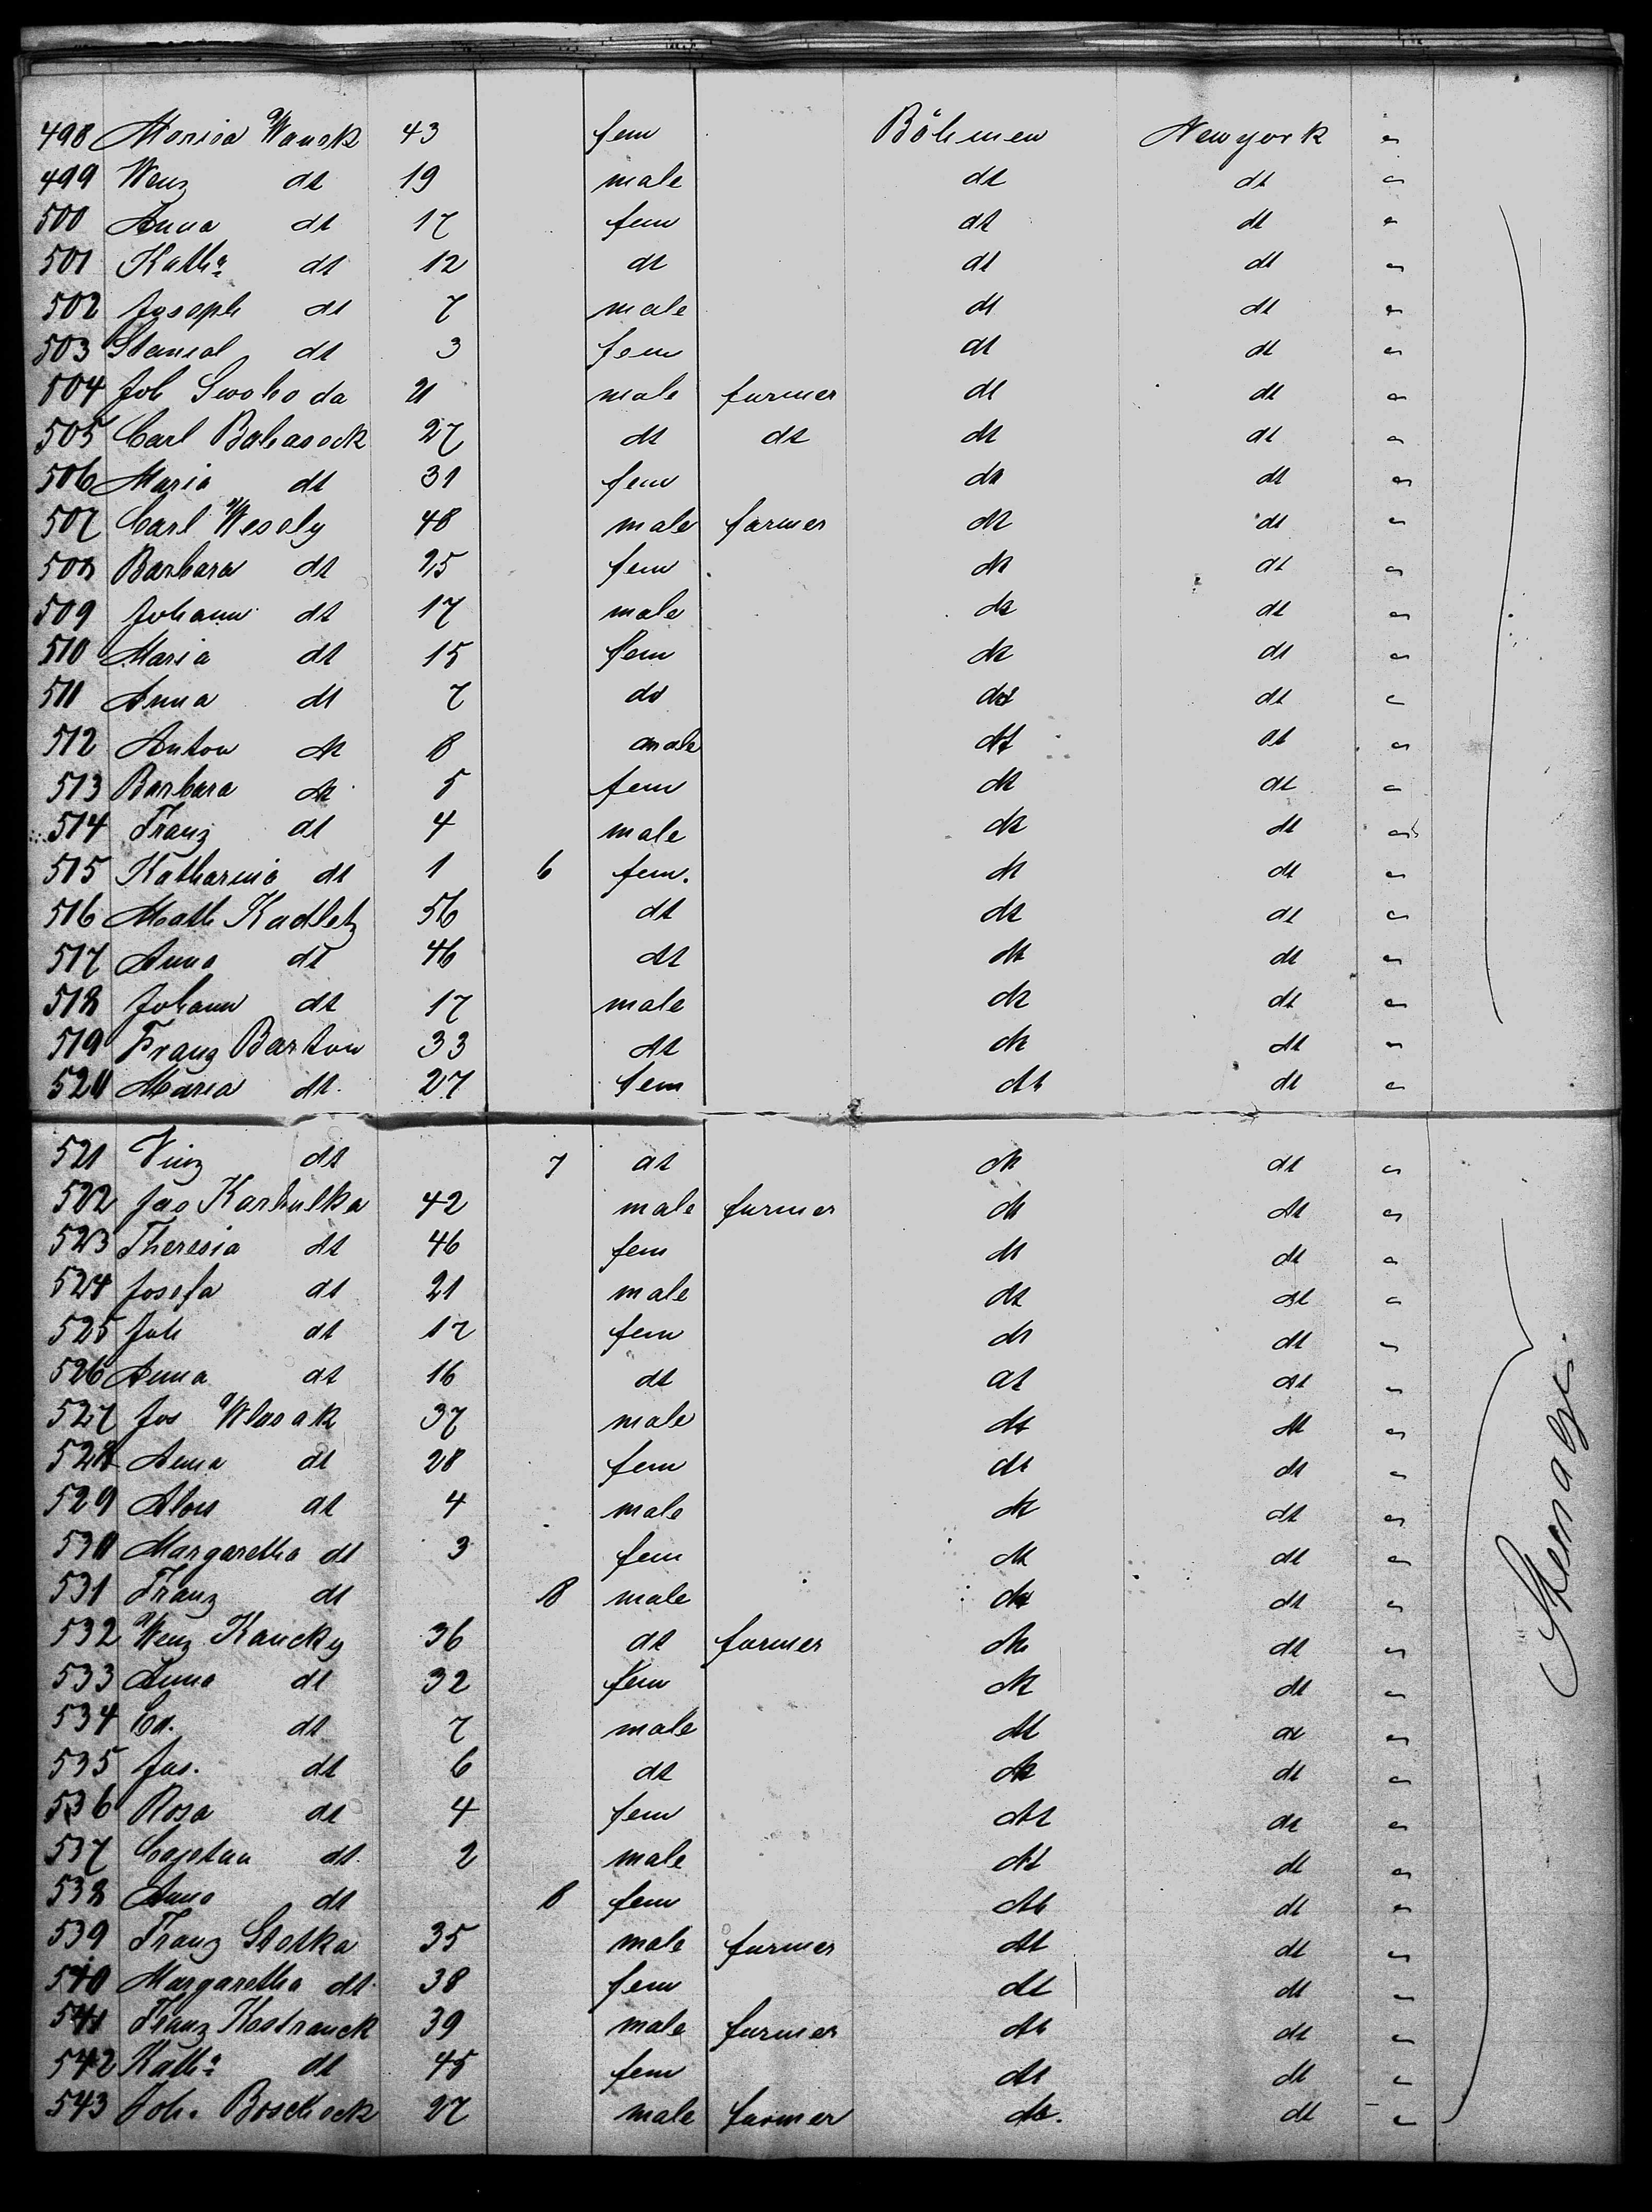 498 Monica Wanek 43 fem Böhmen Newyork
499 Wenz dt 19 male dt dt
500 Anna dt 17 fem dt dt
501 Kath<sup>a</sup> dt 12 dt dt dt
502 Joseph dt 7 male dt dt
503 dt 3 fem dt dt
504 Joh Swoboda 21 male farmer dt dt
505 Carl 27 dt dt dt dt
506 Maria dt 31 fem dt dt
507 Carl Wesely 48 male farmer dt dt
508 Barbara dt 25 fem dt dt
509 Johann dt 17 male dt dt
510 Maria dt 15 fem dt dt
511 Anna dt 7 do dt dt
512 Anton dt 8 male dt dt
513 Barbara dt 5 fem dt dt
514 Franz dt 4 male dt dt
515 Katharina dt 1 6 fem. dt dt
516 Math Kadletz 56 dt dt dt
517 Anna dt 46 dt dt dt
518 Johann dt 17 male dt dt
519 Franz Barton 33 dt dt dt
520 Maria dt. 27 fem dt dt
521 Vinz dt 7 dt dt dt
522 Jos Karhulka 42 male farmer dt dt
523 Theresia dt 46 fem dt dt
524 Josefa dt 21 male dt dt
525 Joh dt 17 fem dt dt
526 Anna dt 16 dt dt dt
527 Jos Wlasak 37 male dt dt
528 Anna dt 28 fem dt dt
529 Alois dt 4 male dt dt
530 Margaretha dt 3 fem dt dt
531 Franz dt 8 male dt dt
532 Wenz Kaucky 36 dt farmer dt dt
533 Anna dt 32 fem dt dt
534 Ed. dt 7 male dt dt
535 Jos. dt 6 dt dt dt
536 Rosa dt 4 fem dt dt
537 Cajetan dt. 2 male dt dt
538 Anna dt 8 fem dt dt
539 Franz Slotka 35 male farmer dt dt
540 Margaretha dt. 38 fem dt dt
541 Franz Kostranek 39 male farmer dt dt
542 Kath<sup>a</sup> dt 45 fem dt dt
543 Joh. Boscheck 27 male farmer dt. dt
Steerage.